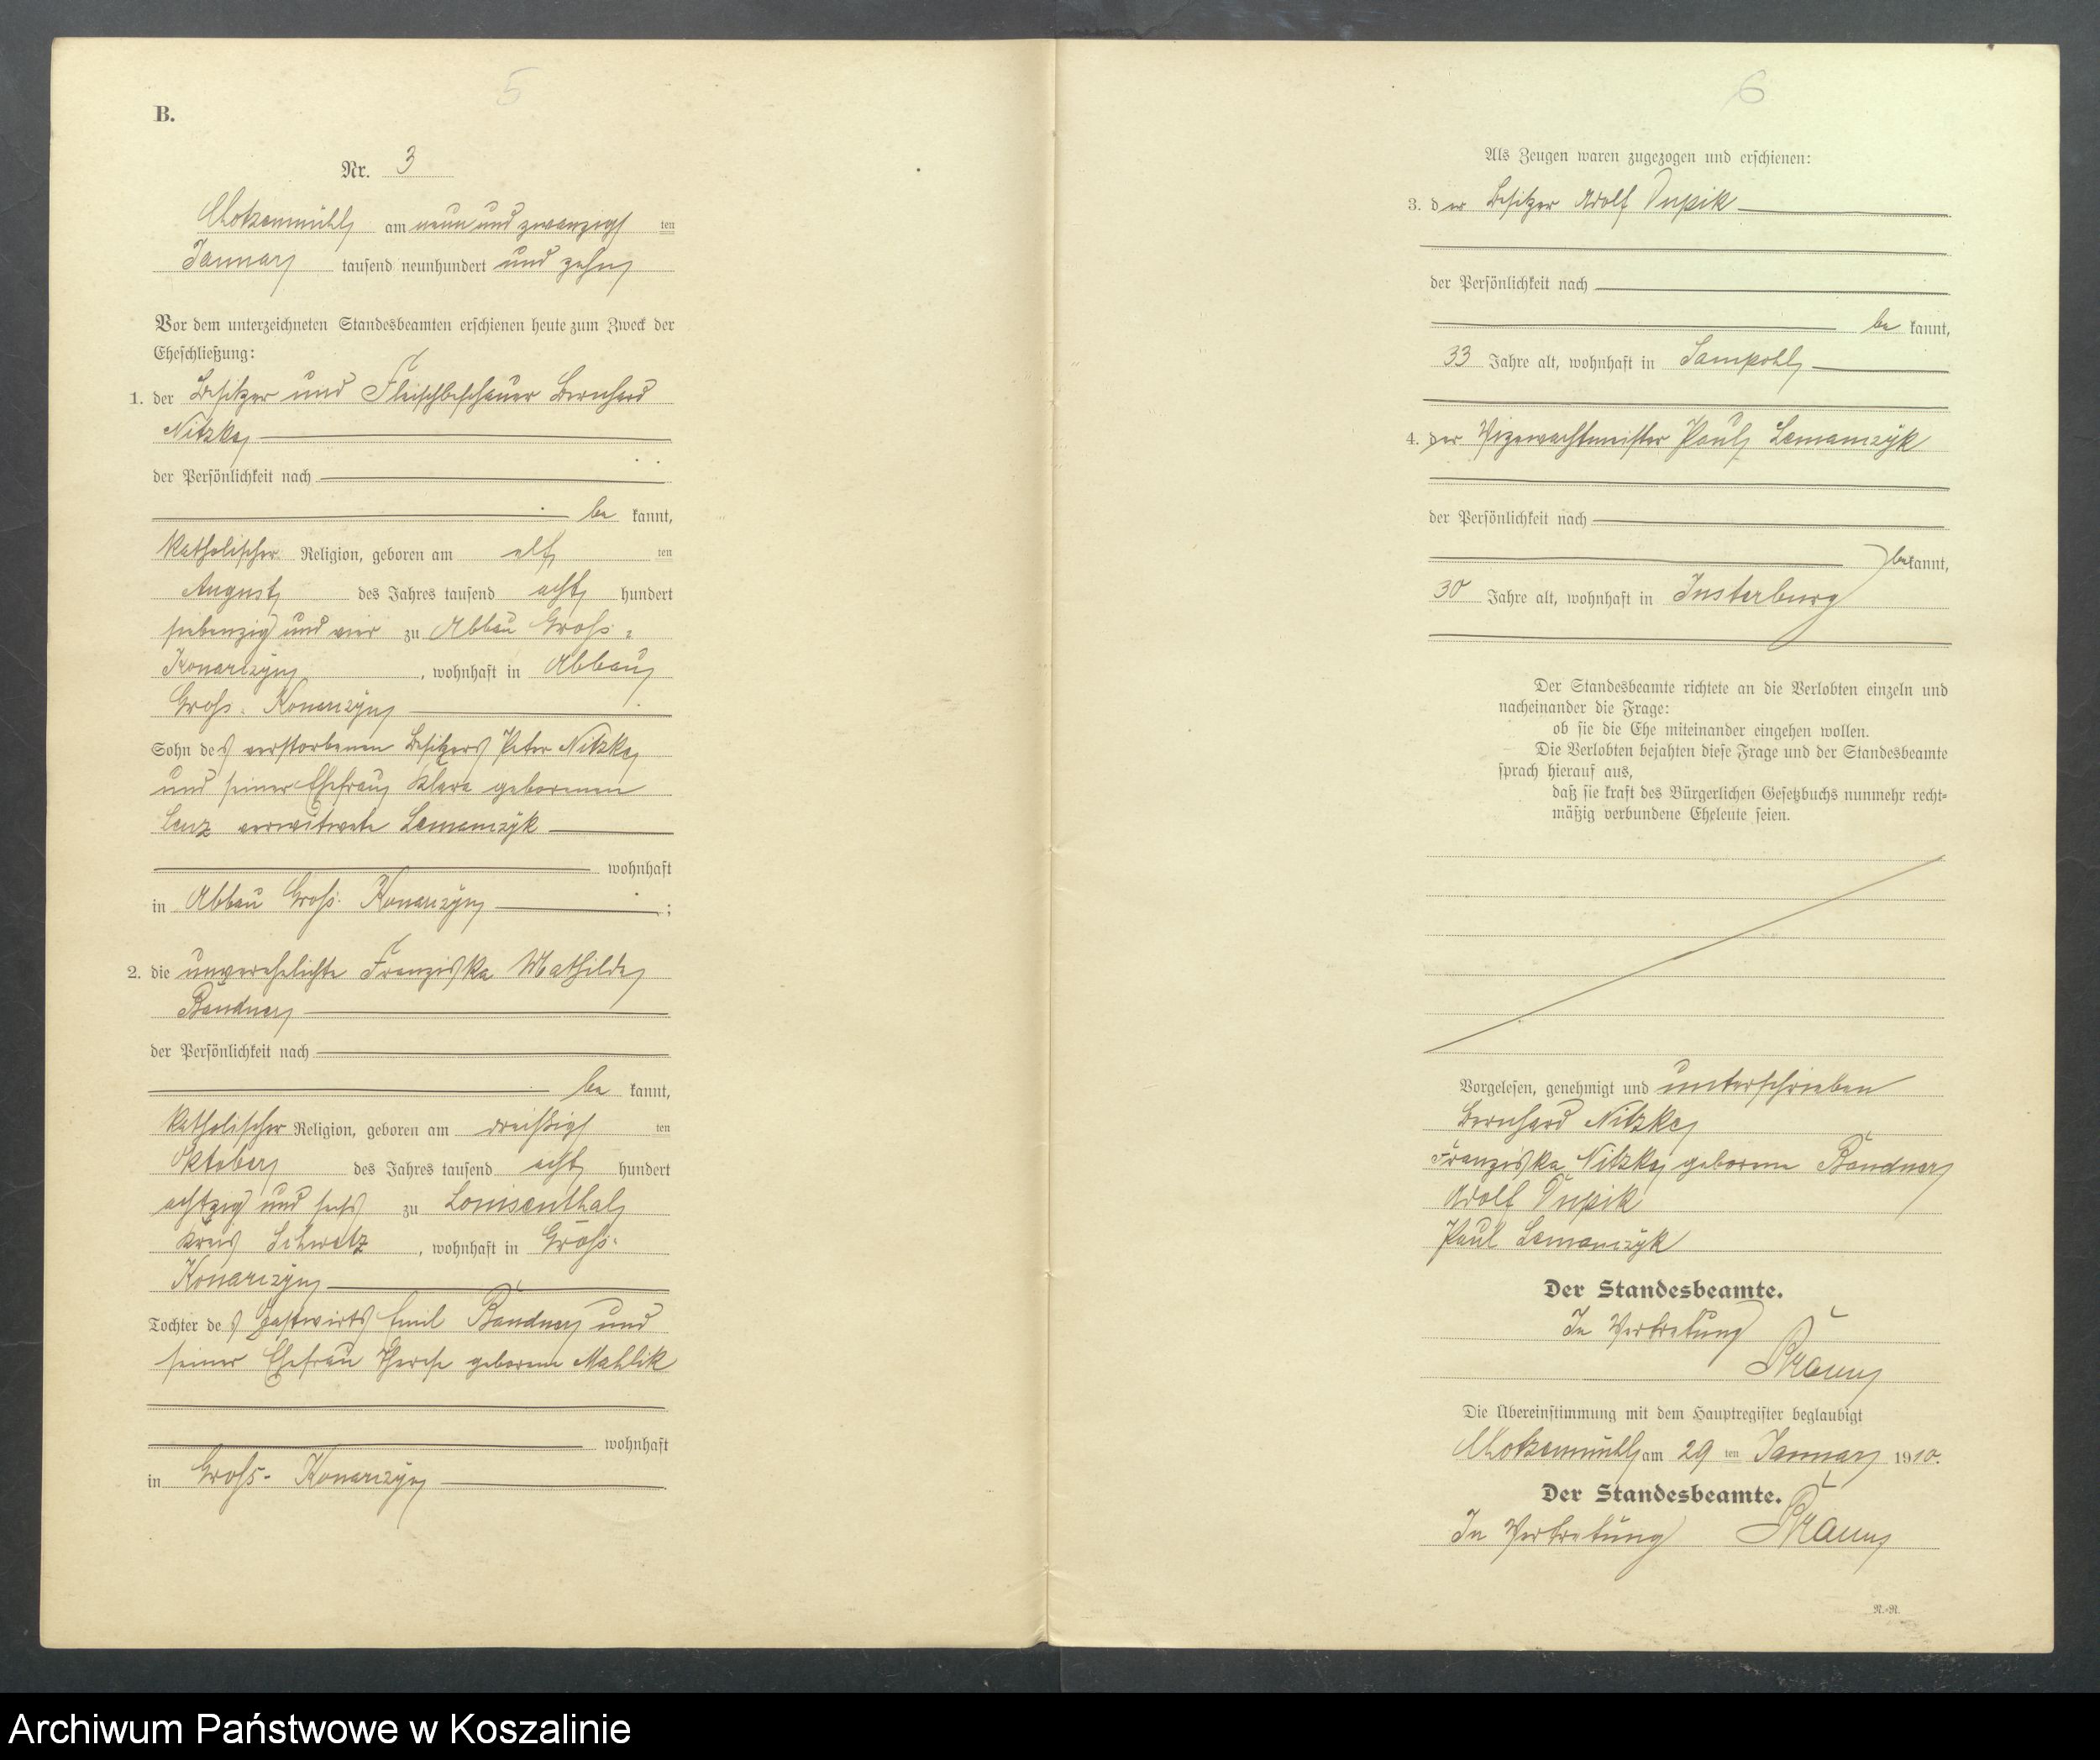 5
B.
Nr. 3
Chotzenmühl am neun und zwanzigsten
Januar tausend neunhundert und zehn
Vor dem unterzeichneten Standesbeamten erschienen heute zum Zweck der
Eheschließung:
1. der Besitzer und Fleischbeschauer Bernhard
Nitzke
der Persönlichkeit nach
be kannt,
katholischer Religion, geboren am elf ten
August des Jahres tausend acht hundert
siebenzig und vier zu Abbau Gross-
Konarczyn, wohnhaft in Abbau
Gross-Konarczyn
Sohn des verstorbenen Besitzers Peter Nitzke
und seiner Ehefrau Klara geborenen
Lenz verwitwete Lemanczÿk
wohnhaft
in Abbau Gross-Konarczyn ;
2. die unverehelichte Franziska Mathilde
Bandner
der Persönlichkeit nach
be kannt,
katholischer Religion, geboren am dreißigsten
Oktober des Jahres tausend acht hundert
achtzig und sechs zu Louisenthal
Kreis Schwetz, wohnhaft in Gross-
Konarczyn
Tochter des Gastwirts Emil Bandner und
seiner Ehefrau Therese geborene Mahlik
wohnhaft
in Gross-Konarczyn
6
Als Zeugen waren zugezogen und erschienen:
3. der Besitzer Adolf Dupik
der Persönlichkeit nach
be kannt,
33 Jahre alt, wohnhaft in Sampohl
4. der Vizewachtmeister Paul Lemanczÿk
der Persönlichkeit nach
be kannt,
30 Jahre alt, wohnhaft in Insterburg
Der Standesbeamte richtete an die Verlobten einzeln und
nacheinander die Frage:
ob sie die Ehe miteinander eingehen wollen.
Die Verlobten bejahten diese Frage und der Standesbeamte
sprach hierauf aus,
daß sie kraft des Bürgerlichen Gesetzbuchs nunmehr recht-
mäßig verbundene Eheleute seien.
Vorgelesen, genehmigt und unterschrieben
Bernhard Nitzke
Franziska Nitzke geborene Bandner
Adolf Dupik
Paul Lemanczÿk
Der Standesbeamte.
In Vertretung
Braun
Die Übereinstimmung mit dem Hauptregister beglaubigt
Chotzenmühl am 29 ten Januar 1910.
Der Standesbeamte.
In Vertretung Braun
R.-R.
Archiwum Państwowe w Koszalinie